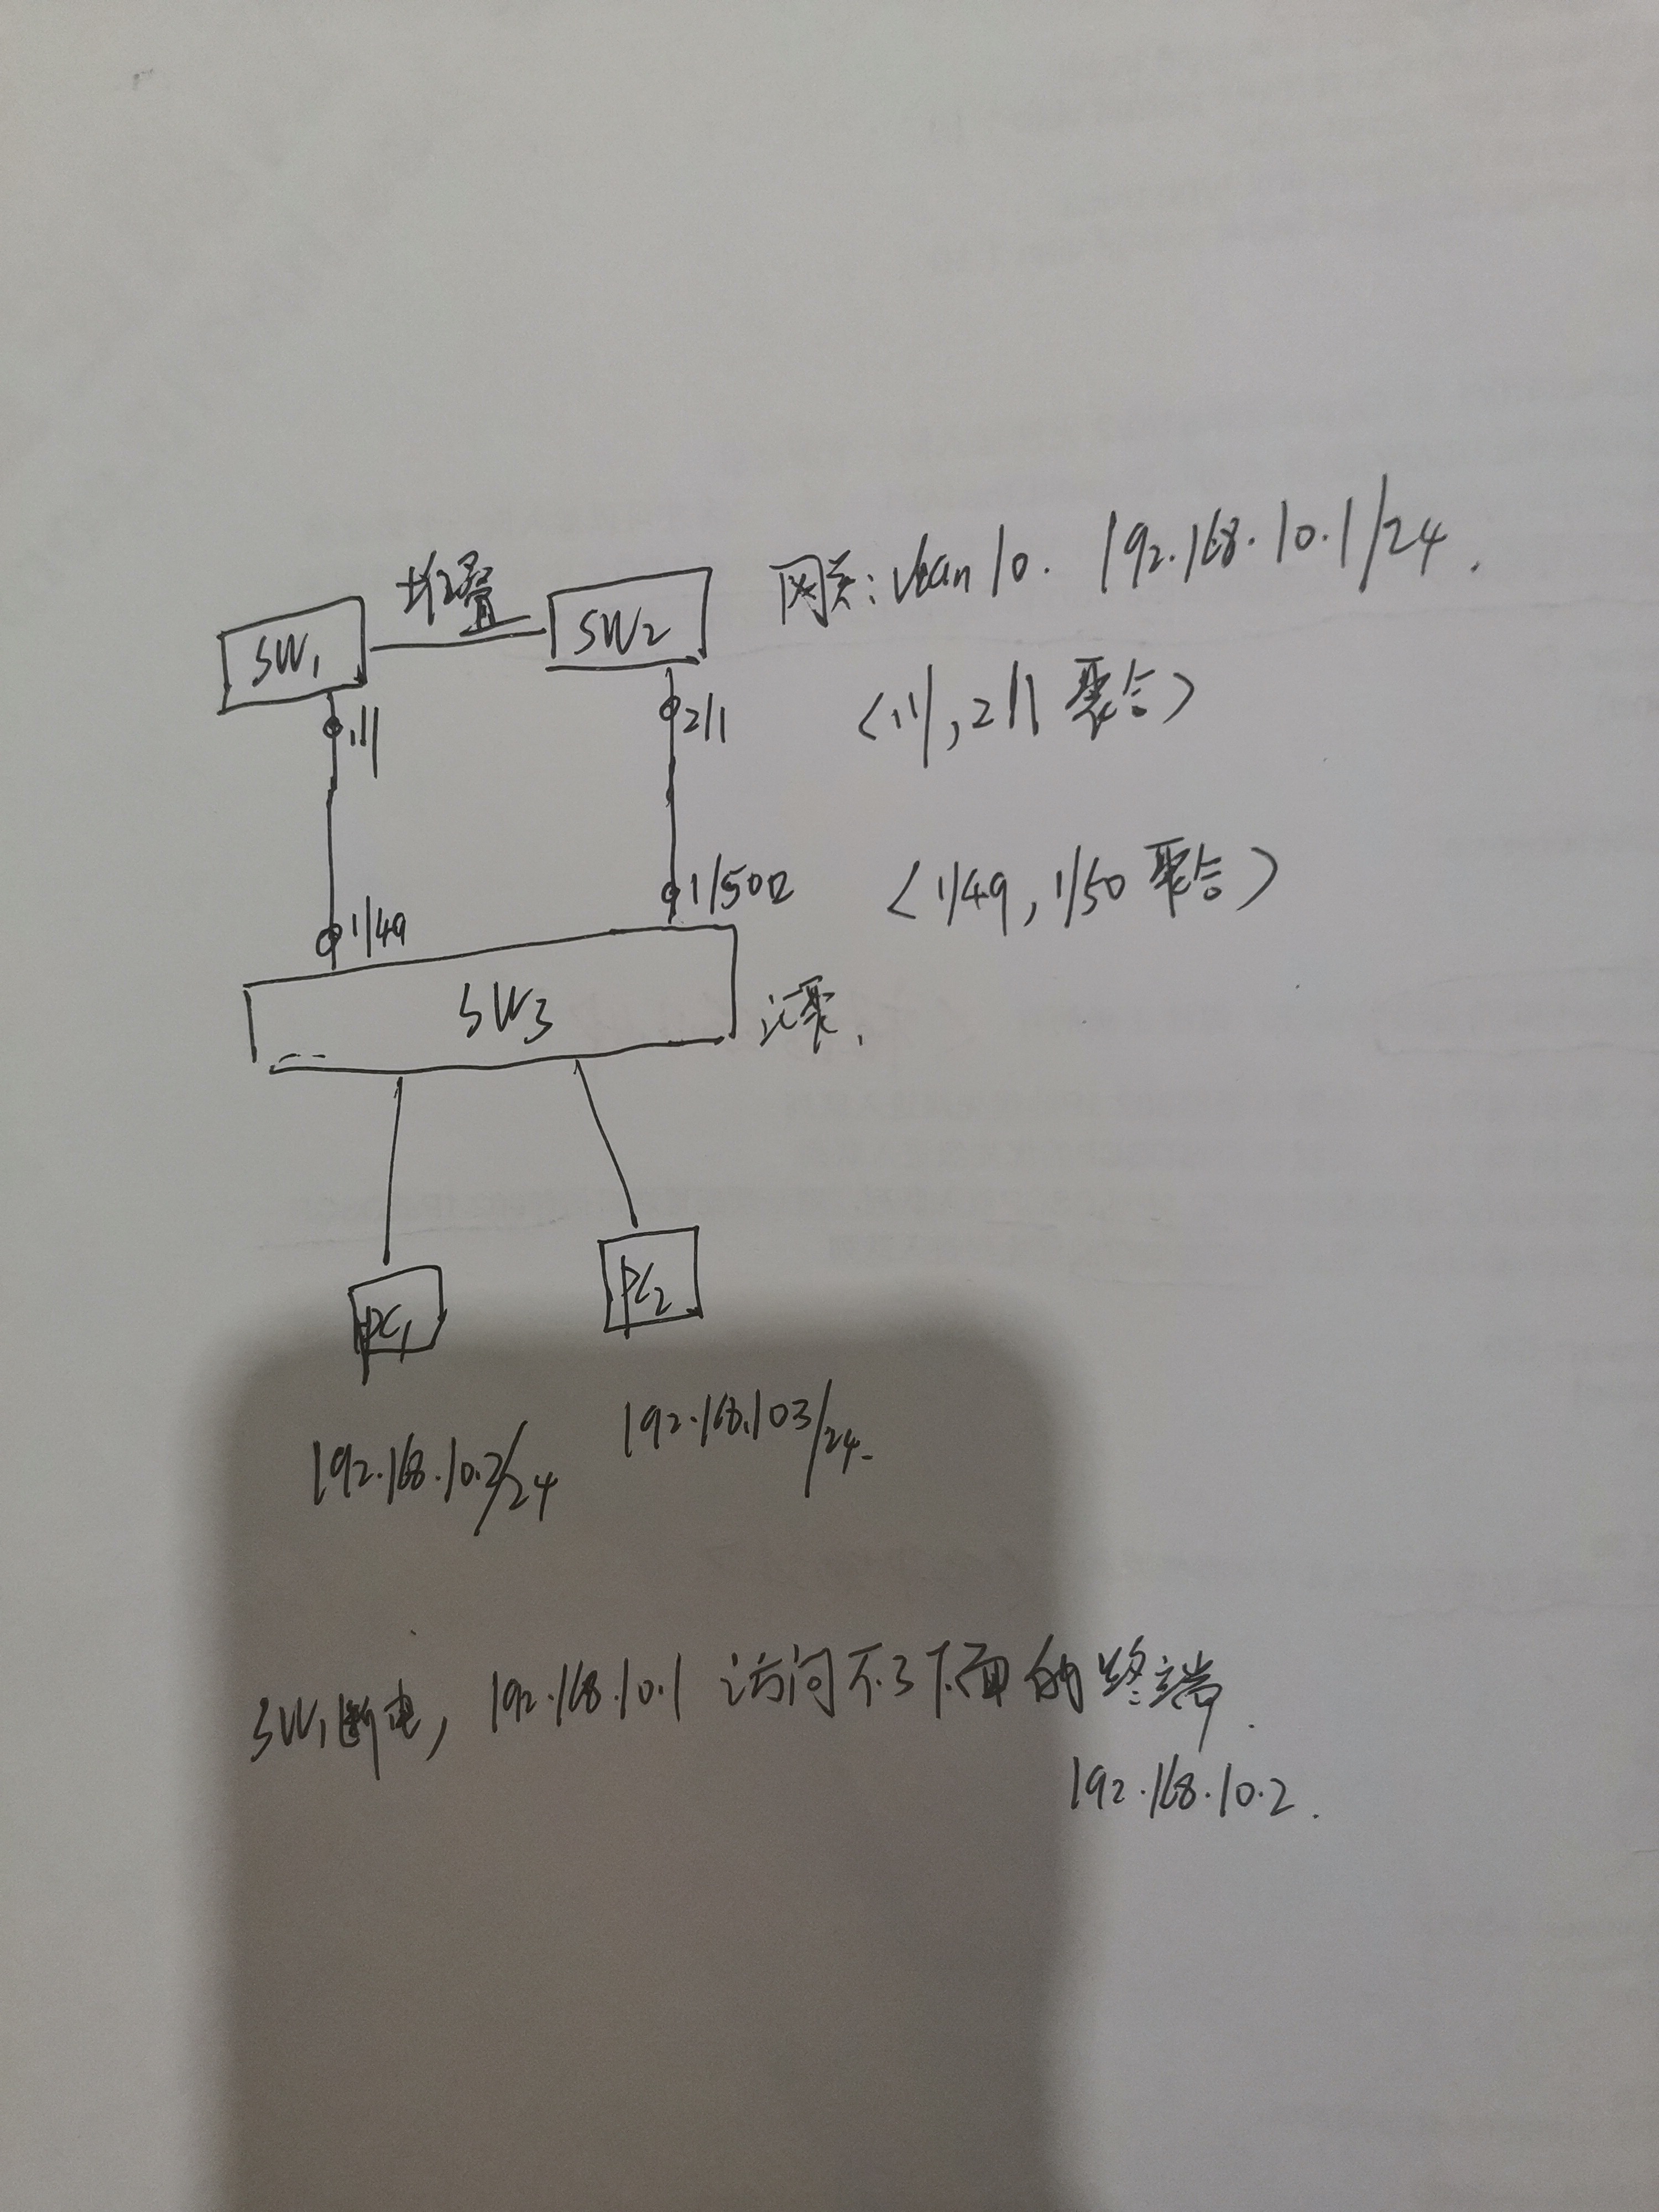 堆叠
SW1
SW2
网关: vlan 10. 192.168.10.1/24.
1/1
2/1
<1/1, 2/1 聚合>
1/50
<1/49, 1/50 聚合>
1/49
SW3
汇聚.
PC1
PC2
192.168.10.2/24
192.168.103/24.
SW1断电, 192.168.10.1 访问不了下面的终端.
192.168.10.2.